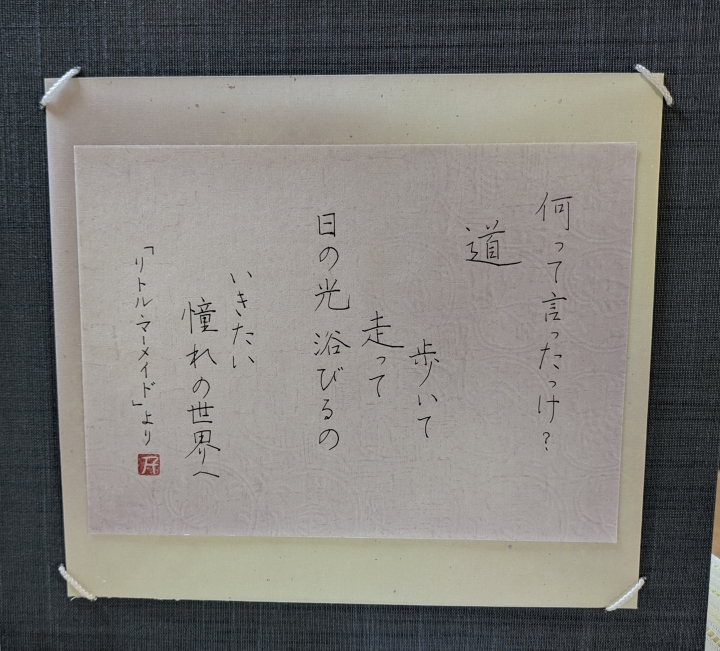 何って言ったっけ?
道
歩いて
走って
日の光 浴びるの
いきたい
憧れの世界へ
「リトル・マーメイド」より